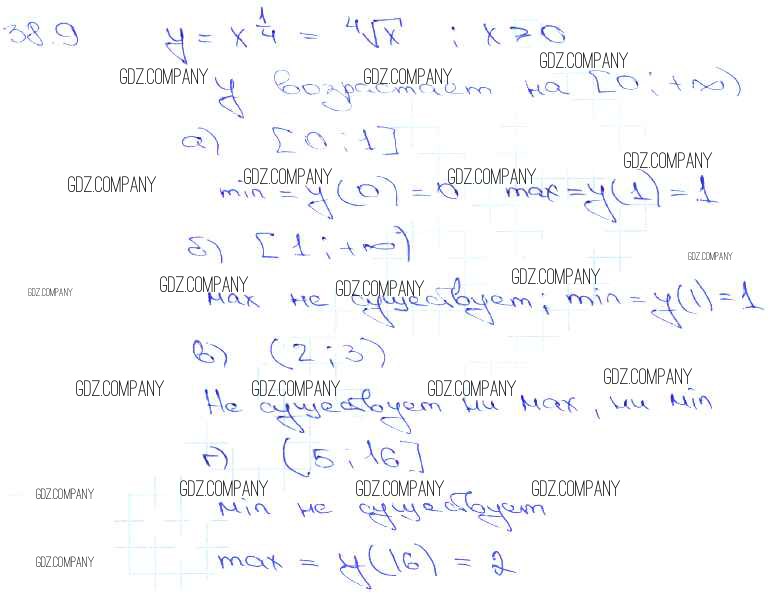 38.9 y = x^{1/4} = ⁴√x ; x ≥ 0
GDZ.COMPANY GDZ.COMPANY GDZ.COMPANY
y возрастает на [0; +∞)
а) [0; 1]
GDZ.COMPANY GDZ.COMPANY GDZ.COMPANY GDZ.COMPANY
min = y(0) = 0 max = y(1) = 1
б) [1; +∞)
GDZ.COMPANY GDZ.COMPANY GDZ.COMPANY GDZ.COMPANY GDZ.COMPANY
max не существует; min = y(1) = 1
в) (2; 3)
GDZ.COMPANY GDZ.COMPANY GDZ.COMPANY GDZ.COMPANY
Не существует ни max, ни min
г) (5; 16]
GDZ.COMPANY GDZ.COMPANY GDZ.COMPANY GDZ.COMPANY
min не существует
GDZ.COMPANY
max = y(16) = 2